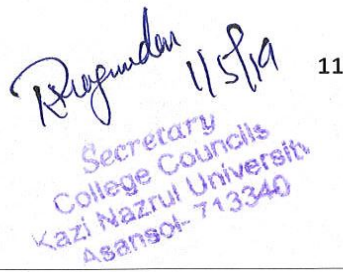 1/5/19
11
Secretary
College Councils
Kazi Nazrul University
Asansol- 713340